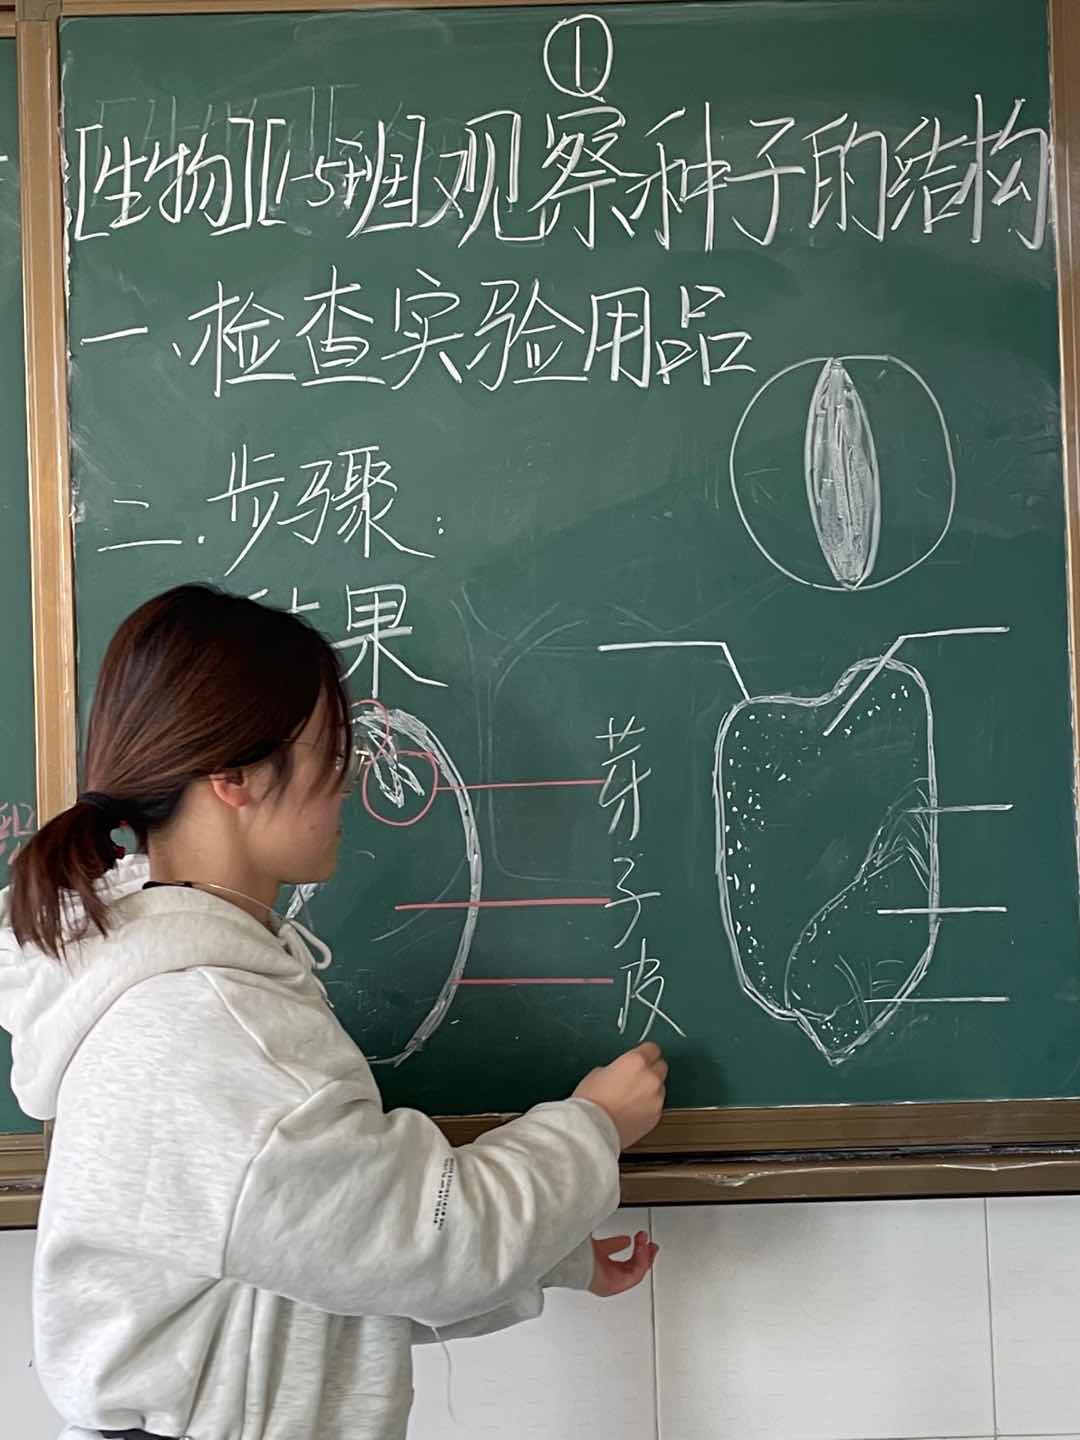 ①
[生物][1-5班]观察种子的结构
一、检查实验用品
二.步骤:
结果
芽
子
皮